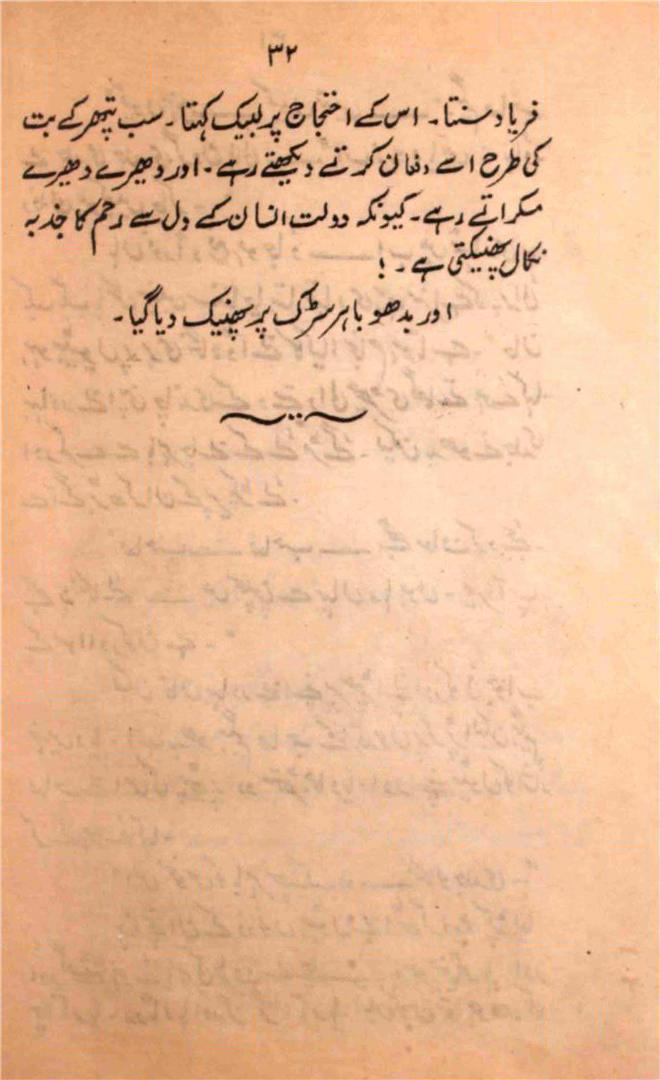 ۳۲
فریاد سنتا۔ اس کے احتجاج پر لبیک کہتا۔ سب پتھر کے بت
کی طرح اسے دفعان کرتے دیکھتے رہے۔ اور دھیرے دھیرے
مکراتے رہے۔ کیونکہ دولت انسان کے دل سے رحم کا جذبہ
نکال پھینکتی ہے۔!
اور بدھو باہر سڑک پر پھینک دیا گیا۔